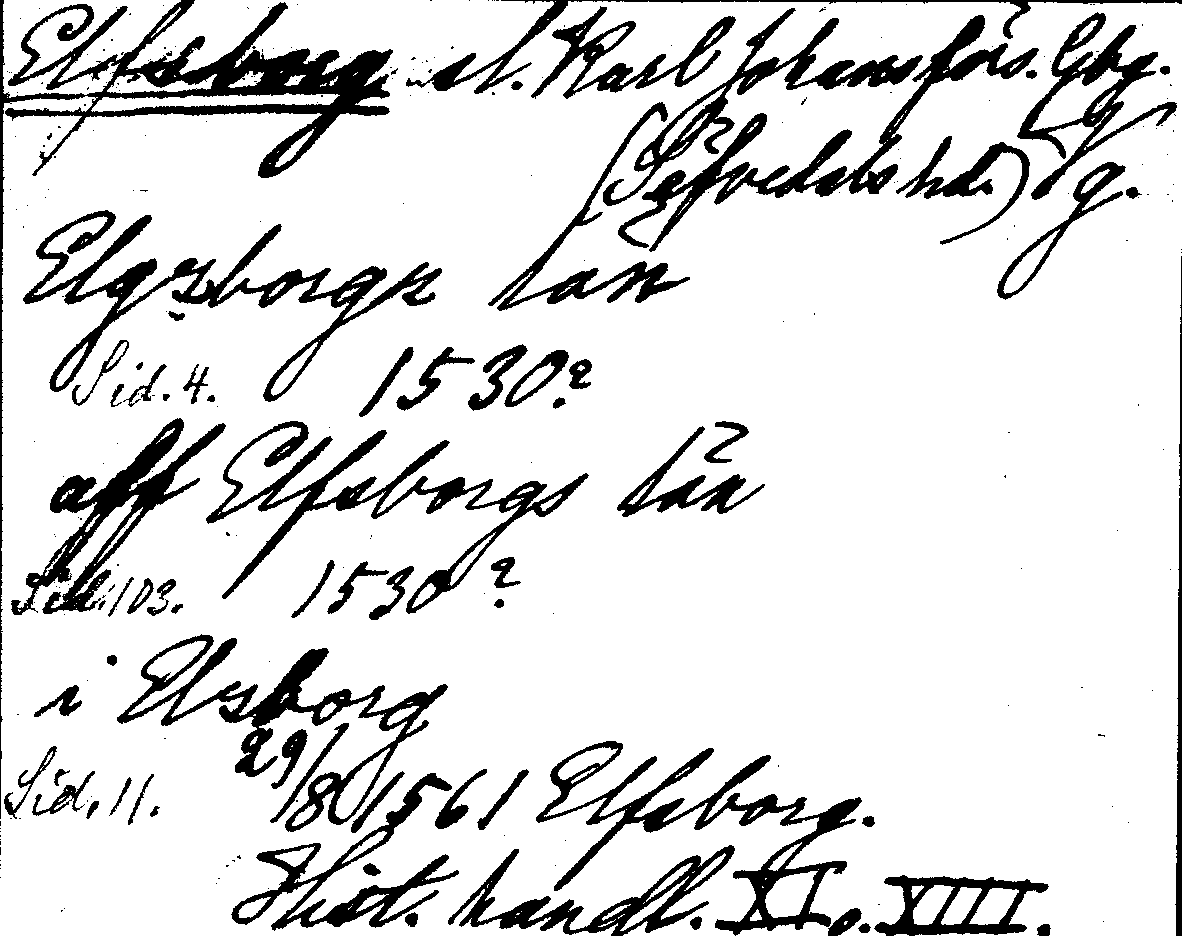 Elfsborg sl. Karl Johansförs. Gbg.
(Säfvedals hd.) Vg.
Elgsborgs län
Sid. 4. 1530?
aff Elfsborgs län
Sid. 103. 1530?
i Elsborg
Sid. 11. 29/8 1561 Elfsborg.
Hist. handl. XI o. XIII.